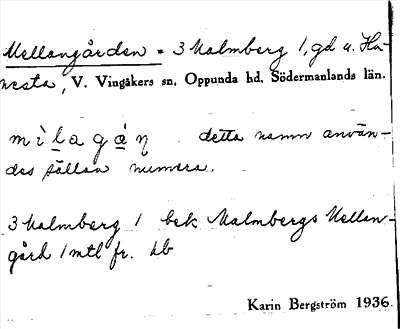 Mellangården = 3 Malmberg 1, gd u. Ha-
nesta, V. Vingåkers sn, Oppunda hd, Södermanlands län.
mìlagá̱n detta namn använ-
des sällan numera.
3 Malmberg 1 bek Malmbergs Mellan-
gård 1 mtl fr. hb
Karin Bergström 1936.